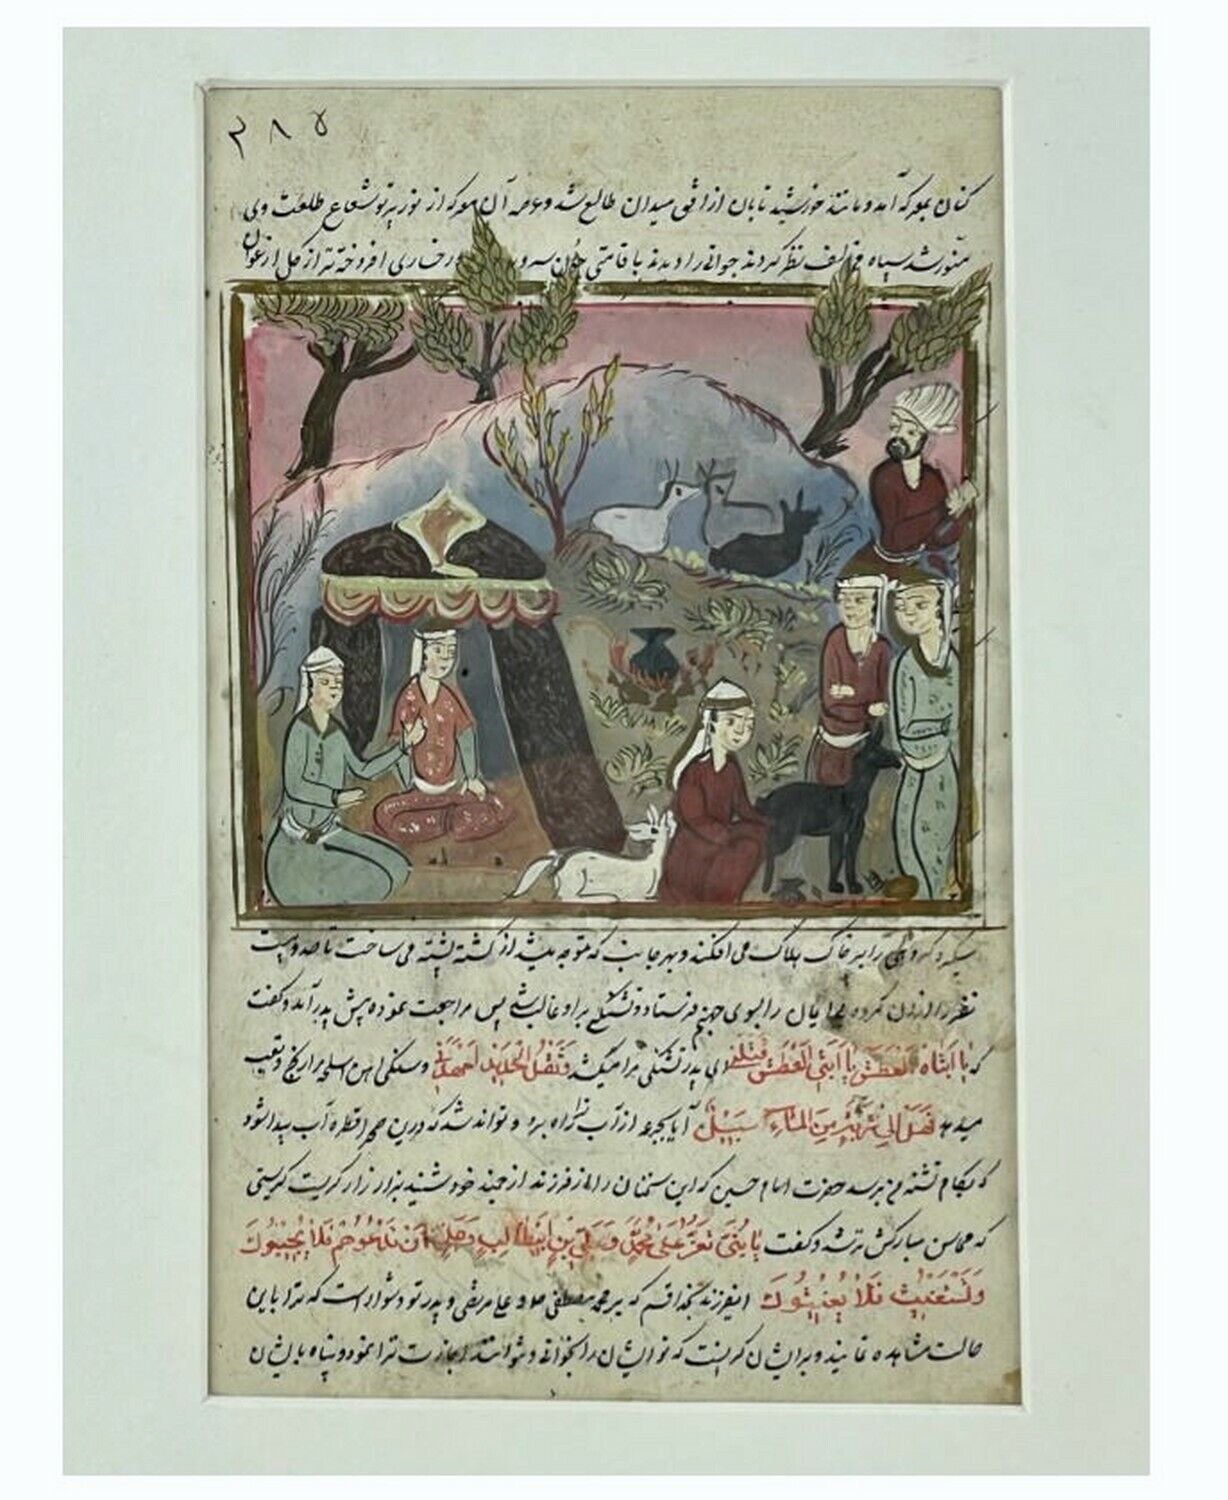 ٣٨٥
کنان بمعرکه آمد و مانند خورشید تابان از افق میدان طالع شد و عرصه آن معرکه از نور پرتو شعاع طلعت وی
منور شد سپاه مخالف نظر کردند جوانی را دیدند با قامتی چون سرو و رخساری افروخته تر از گل ارغوان
را بر خاک هلاک می افکند و بهر جانب که متوجه میشد از کشته پشته می ساخت تا صد و بیست
نفر را از آن گروه را بسوی جهنم فرستاد و تشنگی بر او غالب شد پس مراجعت نموده پیش پدر آمد و گفت
که یا ابتاه العطش یا ابتی العطش فتلنی ای پدر تشنگی مرا میکشد و ثقل الحدید اجهدنی و سنگینی اسلحه مرا رنج و تعب
میدهد فهل الی شربة من الماء سبیل آیا بجرعه از آب راه برد و تواند شد که درین صحرا قطره آب پیدا شود
که بکام تشنه من برسد حضرت امام حسین که این سخنان را از فرزند ارجمند خود شنید بزار زار گریست گریستنی
که محاسن مبارکش تر شد و گفت یا بنی تعز علی محمد و علی بن ابیطالب و علی ان تدعوهم فلا یجیبوک
و تستغیث فلا یغیثوک ای فرزند بخدا قسم که بر محمد مصطفی و علی مرتضی و پدر تو دشوار است که ترا باین
حالت مشاهده نمایند و بر ایشان گران است که تو ایشان را بخوانی و نتوانند اجابت ترا نمود و پناه بایشان